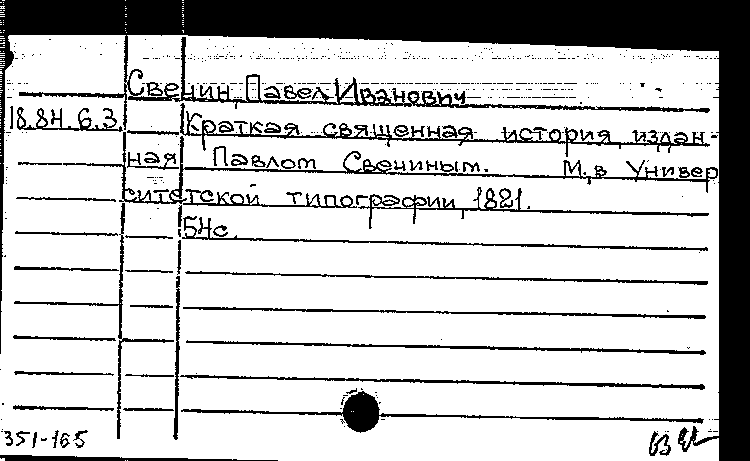 Свечин, Павел Иванович
18.84.6.3. Краткая священная история, издан-
ная Павлом Свечиным. М., в Универ
ситетской типографии, 1821.
54с.
351-165